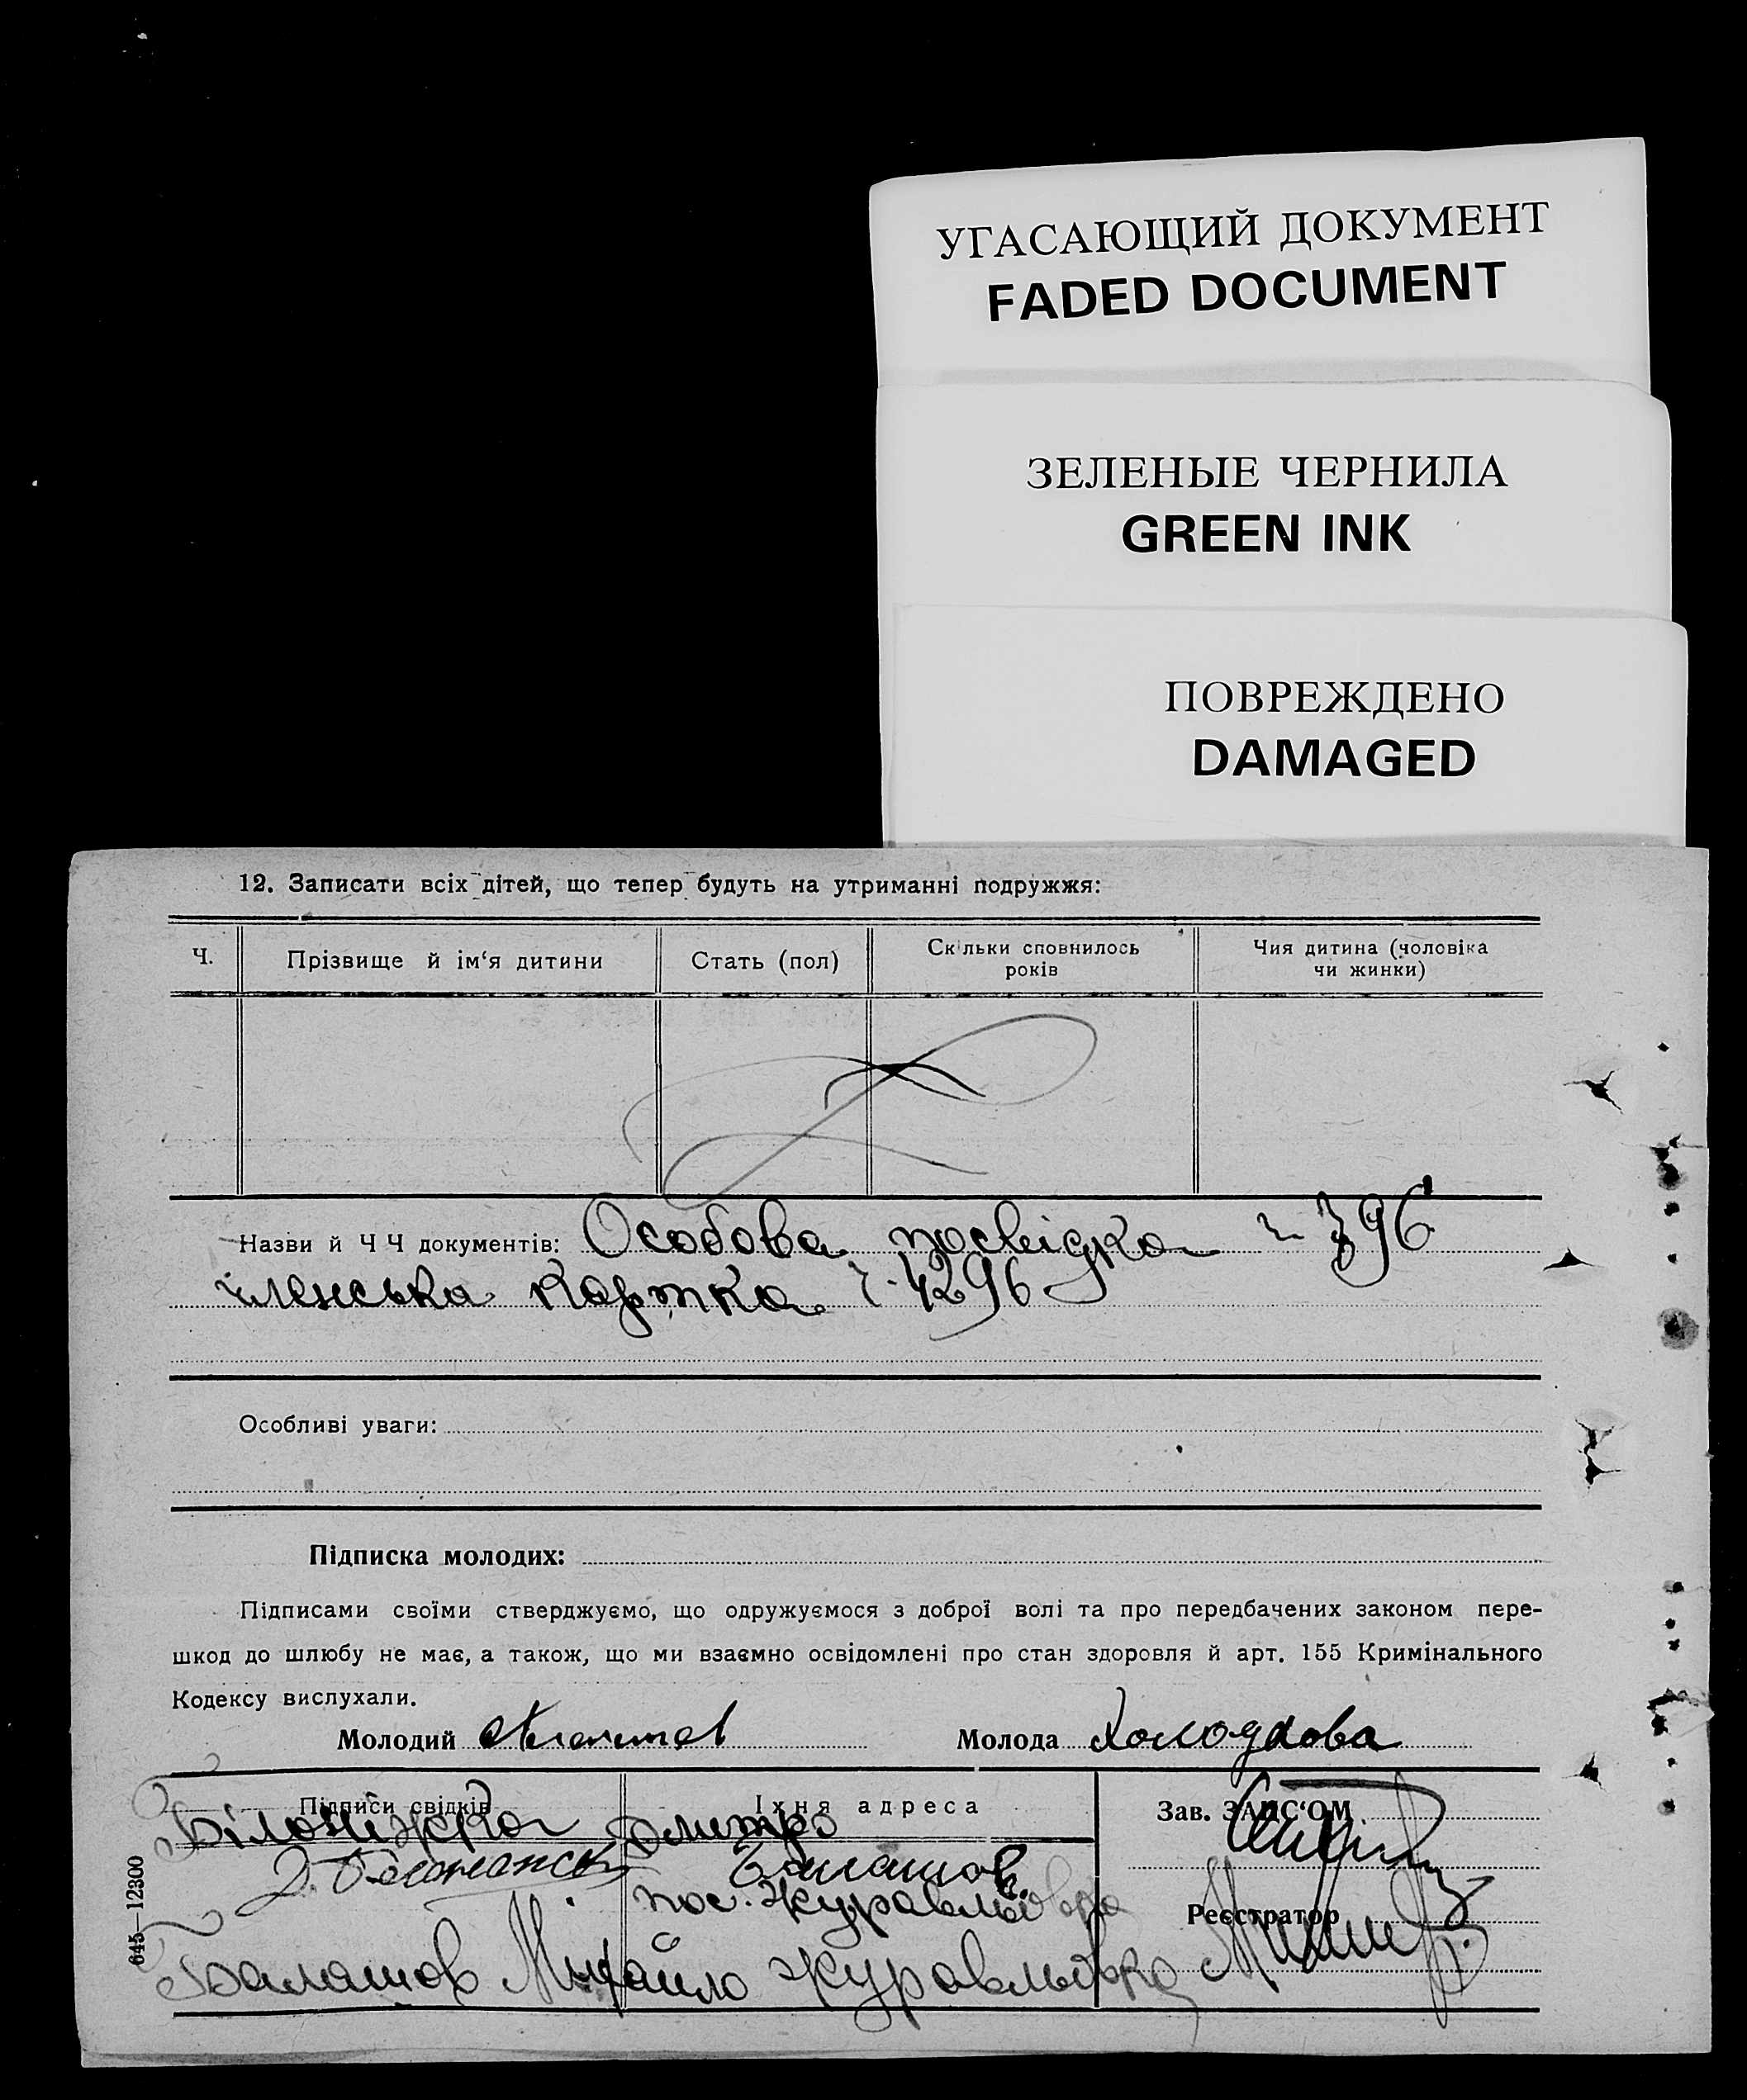 УГАСАЮЩИЙ ДОКУМЕНТ
FADED DOCUMENT
ЗЕЛЕНЫЕ ЧЕРНИЛА
GREEN INK
ПОВРЕЖДЕНО
DAMAGED
12. Записати всіх дітей, що тепер будуть на утриманні подружжя:
Ч.
Прізвище й ім‘я дитини
Стать (пол)
Скільки сповнилось
років
Чия дитина (чоловіка
чи жинки)
Назви й Ч Ч документів: Особова посвідка
членська картка ч. 4296
Особливі уваги:
Підписка молодих:
Підписами своїми стверджуємо, що одружуємося з доброї волі та про передбачених законом пере-
шкод до шлюбу не має, а також, що ми взаємно освідомлені про стан здоровля й арт. 155 Кримінального
Кодексу вислухали.
Молодий
Молода Холодкова
Підписи свідків
Їхня адреса
Зав. ЗАПС‘ОМ
Біланіжка Дмитро
Балашов
пос. Журавлівка
Реєстратор
Балашов Михайло Журавлівка
645—12300